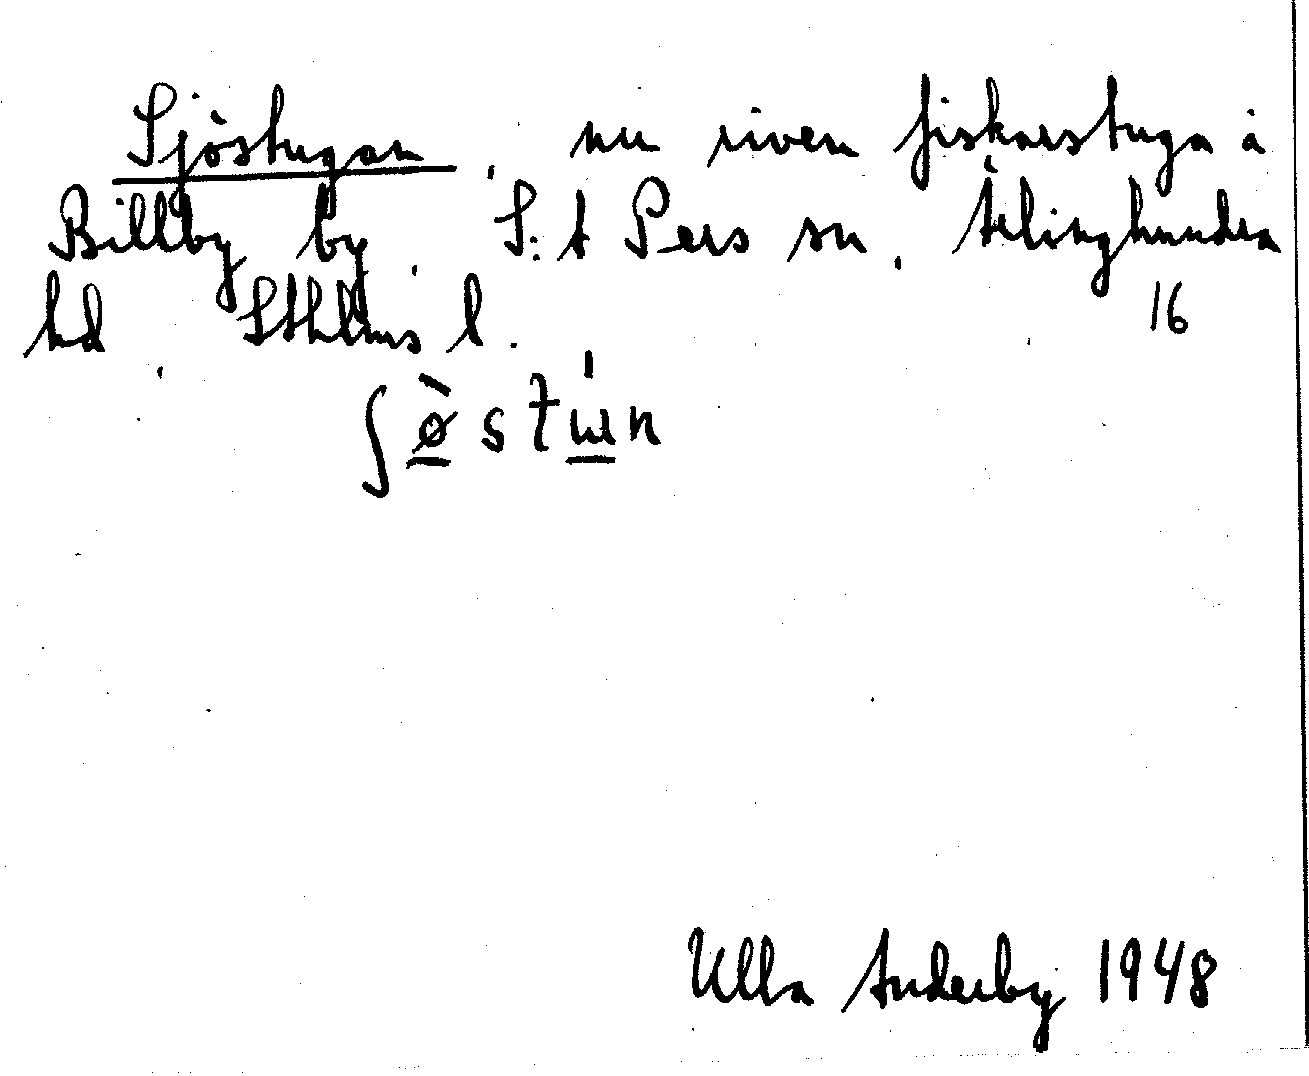 Sjöstugan, nu riven fiskarstuga å
Billby by S:t Pers sn, Ärlinghundra
hd, Sthlms l.
16
ʃø̀stɯ́n
Ulla Anderby 1948